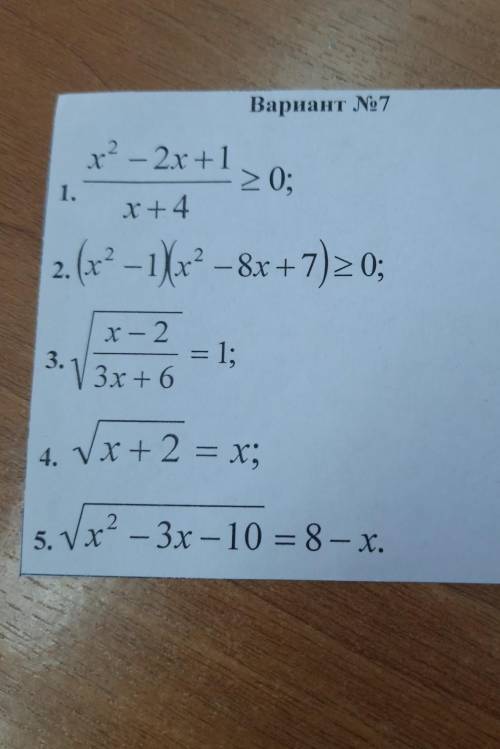 Вариант №7
1. \frac{x² − 2x + 1}{x + 4} ≥ 0;
2. (x² − 1)(x² − 8x + 7) ≥ 0;
3. \sqrt{\frac{x − 2}{3x + 6}} = 1;
4. \sqrt{x + 2} = x;
5. \sqrt{x² − 3x − 10} = 8 − x.